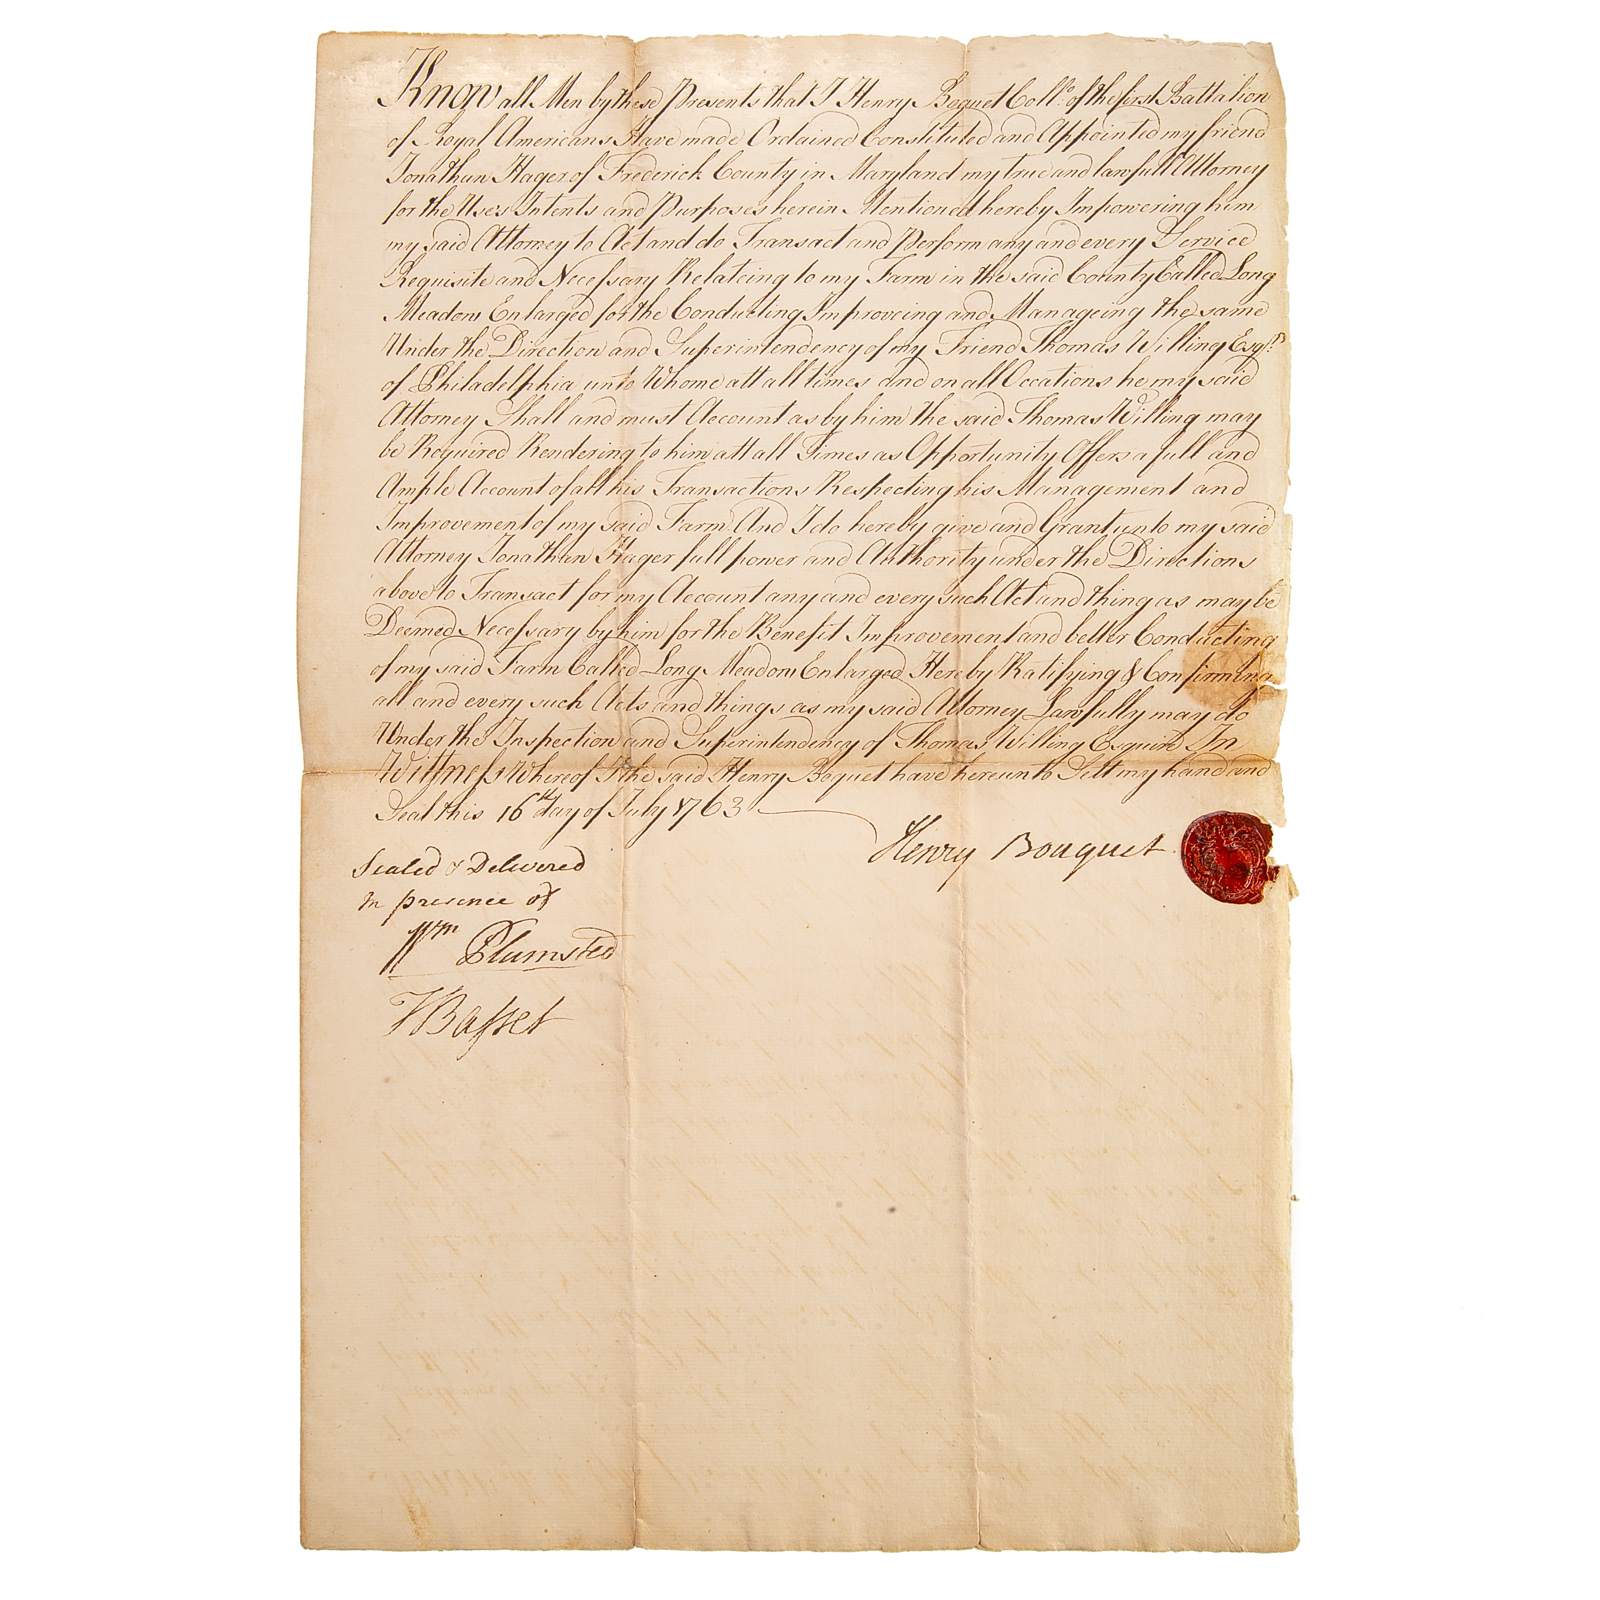 Know all Men by these Presents that I Henry Boquet Coll.o of the first Battalion
of Royal Americans Have made Ordained Constituted and Appointed my friend
Jonathan Hager of Frederick County in Maryland my true and lawfull Attorney
for the Uses Intents and Purposes herein Mentioned hereby Impowering him
my said Attorney to Act and do Transact and Perform any and every Service
Requisite and Necessary Relateing to my Farm in the said County Called Long
Meadow Enlarged for the Conducting Improveing and Manageing the same
Under the Direction and Superintendency of my Friend Thomas Willing Esqr.
of Philadelphia unto Whome att all times and on all Occations he my said
Attorney Shall and must Account as by him the said Thomas Willing may
be Required Rendering to him att all Times as Opportunity Offers a full and
Ample Account of all his Transactions Respecting his Management and
Improvement of my said Farm And I do hereby give and Grant unto my said
Attorney Jonathan Hager full power and Authority under the Directions
above to Transact for my Account any and every such Act and thing as may be
Deemed Necessary by him for the Benefit Improvement and better Conducting
of my said Farm Called Long Meadow Enlarged Hereby Ratifying & Confirming
all and every such Acts and things as my said Attorney Lawfully may do
Under the Inspection and Superintendency of Thomas Willing Esquire In
Witness Whereof I the said Henry Boquet have hereunto Sett my hand and
Seal this 16th day of July 1763
Henry Bouquet
Sealed & Delivered
In presence of
Wm Plumsted
Basset